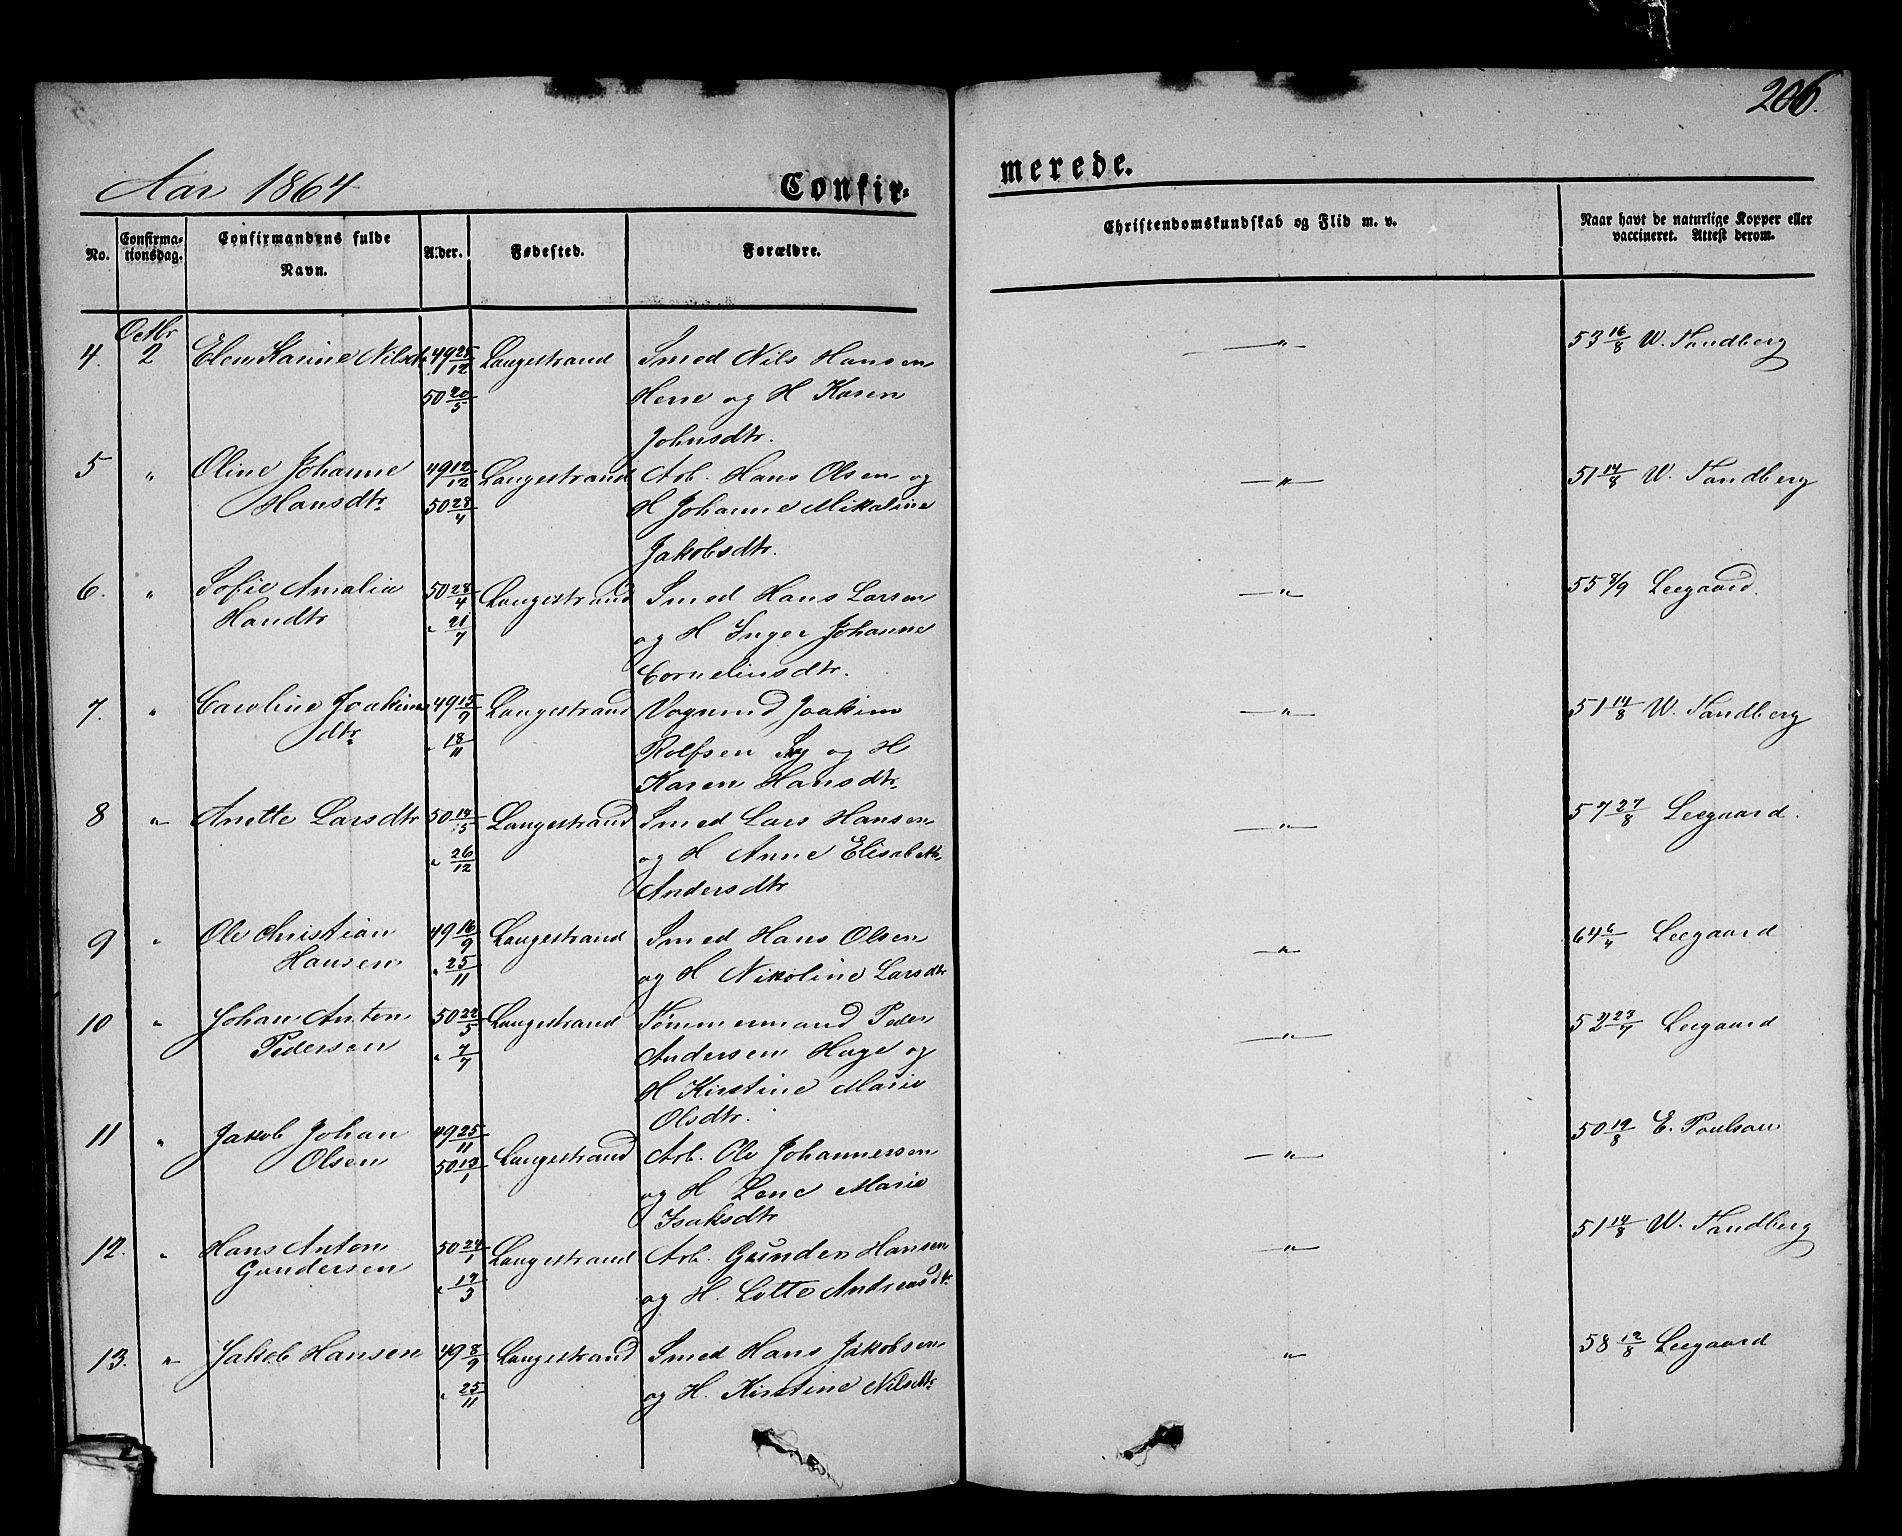 206.
Aar 1864
Confir-
merede.
No.
Confirma-
tionsdag.
Confirmandens fulde
Navn.
Alder.
Fødested.
Forældre.
Christendomskundskab og Flid m. v.
Naar havt de naturlige Kopper eller
vaccineret. Attest derom.
Octbr
4. 2 Elen Nilsdtr 49 25/12 Langestrand Smed Nils Hansen — " — 53 16/8 W. Sandberg
50 20/5 Herre og H Karen
Johnsdtr.
5 " Oline Johanne 49 12/12 Langestrand Arb. Hans Olsen og — " — 51 14/8 W. Sandberg
Hansdtr 50 28/4 H Johanne Mikaline
Jakobsdtr.
6. " Sofie Amalia 50 28/4 Langestrand Smed Hans Larsen — " — 55 8/9 Leegaard.
Handtr " 21/7 og H Inger Johanne
Corneliusdtr.
7. " Caroline Joakims 49 15/9 Langestrand Vognmd Joakim — " — 51 14/8 W. Sandberg
dtr " 18/11 Rolfsen og H
Karen Hansdtr.
8 " Anette Larsdtr 50 Langestrand Smed Lars Hansen — " — 57 27/8 Leegaard.
" 26/12 og H Anne Elisabeth
Andersdtr
9 " Ole Christian 49 16/9 Langestrand Smed Hans Olsen — " — 64 Leegaard
Hansen " 25/11 og H Nikoline Larsdtr
10 " Johan Anton 50 22/5 Langestrand Tømmermand Peder — " — 52 Leegaard
Pedersen " 7/7 Andersen Hage og
H Kirstine Marie
Olsdtr.
11 " Jakob Johan 49 25/11 Langestrand Arb. Ole Johannessen — " — 50 19/8 E. Poulsen
Olsen 50 13/1 og H Lene Marie
Isaksdtr
12. " Hans Anton 50 24/1 Langestrand Arb. Gunder Hansen — " — 51 14/8 W. Sandberg
Gundersen " 17/3 og H. Lotte Andreasdtr.
13. " Jakob Hansen 49 8/9 Langestrand Smed Hans Jakobsen " 58 12/8 Leegaard
" 25/11 og H. Kirstine Nilsdtr